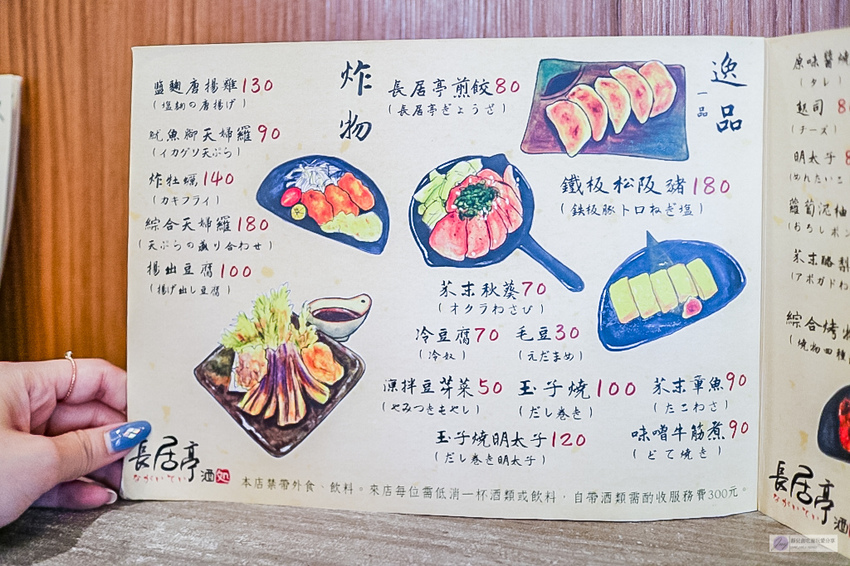 炸物
鹽麴唐揚雞130
(塩麴の唐揚げ)
魷魚腳天婦羅90
(イカゲソ天ぷら)
炸牡蠣140
(カキフライ)
綜合天婦羅180
(天ぷらの盛り合わせ)
揚出豆腐100
(揚げ出し豆腐)
逸品
一品
長居亭煎餃80
(長居亭ぎょうざ)
鐵板松阪豬180
(鉄板豚トロねぎ塩)
芥末秋葵70
(オクラわさび)
冷豆腐70 毛豆30
(冷奴) (えだまめ)
涼拌豆芽菜50 玉子燒100 芥末章魚90
(やみつきもやし) (だし巻き) (たこわさ)
玉子燒明太子120 味噌牛筋煮90
(だし巻き明太子) (どて焼き)
長居亭 酒処
ながいてい
本店禁帶外食、飲料。來店每位需低消一杯酒類或飲料,自帶酒類需酌收服務費300元。
原味醬燒
(タレ)
起司 8
(チーズ)
明太子 8
(めんたいこ
蘿蔔泥柚
(おろしポン
芥末酪梨
(アボガドわ
綜合烤物
(焼物四種
長居亭 酒
ながいてい